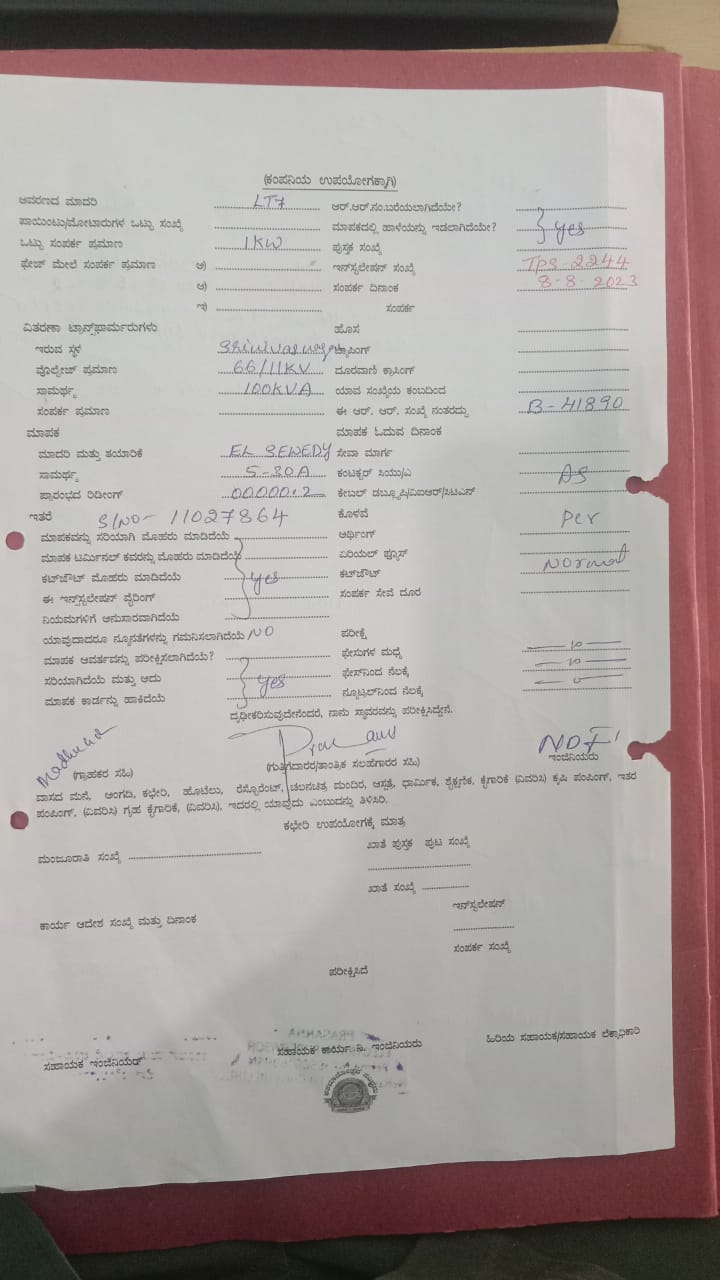 (ಕಂಪನಿಯ ಉಪಯೋಗಕ್ಕಾಗಿ)
ಆವರಣದ ಮಾದರಿ LT7 ಆರ್.ಆರ್.ನಂ.ಬರೆಯಲಾಗಿದೆಯೇ?
ಪಾಯಿಂಟು/ಮೋಟಾರುಗಳ ಒಟ್ಟು ಸಂಖ್ಯೆ ಮಾಪಕದಲ್ಲಿ ಹಾಳೆಯನ್ನು ಇಡಲಾಗಿದೆಯೇ? yes
ಒಟ್ಟು ಸಂಪರ್ಕ ಪ್ರಮಾಣ 1KW ಪುಸ್ತಕ ಸಂಖ್ಯೆ
ಫೇಜ್ ಮೇಲೆ ಸಂಪರ್ಕ ಪ್ರಮಾಣ ಅ) ಇನ್‌ಸ್ಟಲೇಷನ್ ಸಂಖ್ಯೆ TPS-2244
ಆ) ಸಂಪರ್ಕ ದಿನಾಂಕ 8-8-2023
ಇ) ಸಂಪರ್ಕ
ವಿತರಣಾ ಟ್ರಾನ್ಸ್‌ಫಾರ್ಮರುಗಳು ಹೊಸ
ಇರುವ ಸ್ಥಳ ಟ್ಯಾಪಿಂಗ್
ವೊಲ್ಟೇಜ್ ಪ್ರಮಾಣ 66/11KV ದೂರವಾಣಿ ಕ್ರಾಸಿಂಗ್
ಸಾಮರ್ಥ್ಯ 100KVA ಯಾವ ಸಂಖ್ಯೆಯ ಕಂಬದಿಂದ
ಸಂಪರ್ಕ ಪ್ರಮಾಣ ಈ ಆರ್. ಆರ್. ಸಂಖ್ಯೆ ನಂತರದ್ದು B-41890
ಮಾಪಕ ಮಾಪಕ ಓದುವ ದಿನಾಂಕ
ಮಾದರಿ ಮತ್ತು ತಯಾರಿಕೆ EL SEWEDY ಸೇವಾ ಮಾರ್ಗ
ಸಾಮರ್ಥ್ಯ 5-30A ಕಂಡಕ್ಟರ್ ಸಿಯು/ಎ As
ಪ್ರಾರಂಭದ ರಿಡೀಂಗ್ 00000.2 ಕೇಬಲ್ ಡಬ್ಲ್ಯೂಪಿ/ವಿಐಆರ್/ಸಿಟಿಎಸ್
ಇತರೆ S/NO- 11027864 ಕೊಳವೆ Per
ಮಾಪಕವನ್ನು ಸರಿಯಾಗಿ ಮೊಹರು ಮಾಡಿದೆಯೆ ಆರ್ಥಿಂಗ್
ಮಾಪಕ ಟರ್ಮಿನಲ್ ಕವರನ್ನು ಮೊಹರು ಮಾಡಿದೆಯೆ ಏರಿಯಲ್ ಫ್ಯೂಸ್
ಕಟ್‌ಔಟ್ ಮೊಹರು ಮಾಡಿದೆಯೆ yes ಕಟ್‌ಔಟ್ Normal
ಈ ಇನ್‌ಸ್ಟಲೇಷನ್ ವೈರಿಂಗ್ ಸಂಪರ್ಕ ಸೇವೆ ದೂರ
ನಿಯಮಗಳಿಗೆ ಅನುಸಾರವಾಗಿದೆಯೆ
ಯಾವುದಾದರೂ ನ್ಯೂನತೆಗಳನ್ನು ಗಮನಿಸಲಾಗಿದೆಯೆ NO ಪರೀಕ್ಷೆ
ಮಾಪಕ ಆವರ್ತವನ್ನು ಪರೀಕ್ಷಿಸಲಾಗಿದೆಯೆ? ಫೇಸುಗಳ ಮಧ್ಯೆ
ಸರಿಯಾಗಿದೆಯೆ ಮತ್ತು ಅದು yes ಫೇಸ್‌ನಿಂದ ನೆಲಕ್ಕೆ
ಮಾಪಕ ಕಾರ್ಡನ್ನು ಹಾಕಿದೆಯೆ ನ್ಯೂಟ್ರಲ್‌ನಿಂದ ನೆಲಕ್ಕೆ
ದೃಢೀಕರಿಸುವುದೇನೆಂದರೆ, ನಾನು ಸ್ಥಾವರವನ್ನು ಪರೀಕ್ಷಿಸಿದ್ದೇನೆ.
(ಗ್ರಾಹಕರ ಸಹಿ) (ಗುತ್ತಿಗೆದಾರರ/ತಾಂತ್ರಿಕ ಸಲಹೆಗಾರರ ಸಹಿ) ಇಂಜಿನಿಯರು
ವಾಸದ ಮನೆ, ಅಂಗಡಿ, ಕಛೇರಿ, ಹೊಟೇಲು, ರೆಸ್ಟೊರೆಂಟ್, ಚಲನಚಿತ್ರ ಮಂದಿರ, ಆಸ್ಪತ್ರೆ, ಧಾರ್ಮಿಕ, ಶೈಕ್ಷಣಿಕ, ಕೈಗಾರಿಕೆ (ವಿವರಿಸಿ) ಕೃಷಿ ಪಂಪಿಂಗ್, ಇತರ
ಪಂಪಿಂಗ್, (ವಿವರಿಸಿ) ಗೃಹ ಕೈಗಾರಿಕೆ, (ವಿವರಿಸಿ), ಇದರಲ್ಲಿ ಯಾವುದು ಎಂಬುದನ್ನು ತಿಳಿಸಿರಿ.
ಕಛೇರಿ ಉಪಯೋಗಕ್ಕೆ ಮಾತ್ರ
ಮಂಜೂರಾತಿ ಸಂಖ್ಯೆ ಖಾತೆ ಪುಸ್ತಕ ಪುಟ ಸಂಖ್ಯೆ
ಖಾತೆ ಸಂಖ್ಯೆ
ಇನ್‌ಸ್ಟಲೇಷನ್
ಕಾರ್ಯ ಆದೇಶ ಸಂಖ್ಯೆ ಮತ್ತು ದಿನಾಂಕ
ಸಂಪರ್ಕ ಸಂಖ್ಯೆ
ಪರೀಕ್ಷಿಸಿದೆ
ಸಹಾಯಕ ಇಂಜಿನಿಯರ್ ಸಹಾಯಕ ಕಾರ್ಯ ನಿ. ಇಂಜಿನಿಯರು ಹಿರಿಯ ಸಹಾಯಕ/ಸಹಾಯಕ ಲೆಕ್ಕಾಧಿಕಾರಿ